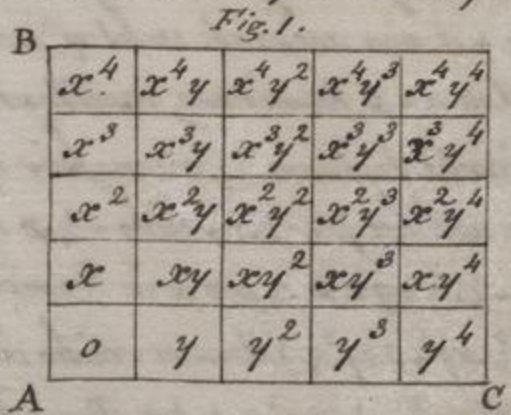 Fig. 1.
B
x⁴ x⁴y x⁴y² x⁴y³ x⁴y⁴
x³ x³y x³y² x³y³ x³y⁴
x² x²y x²y² x²y³ x²y⁴
x xy xy² xy³ xy⁴
o y y² y³ y⁴
A C